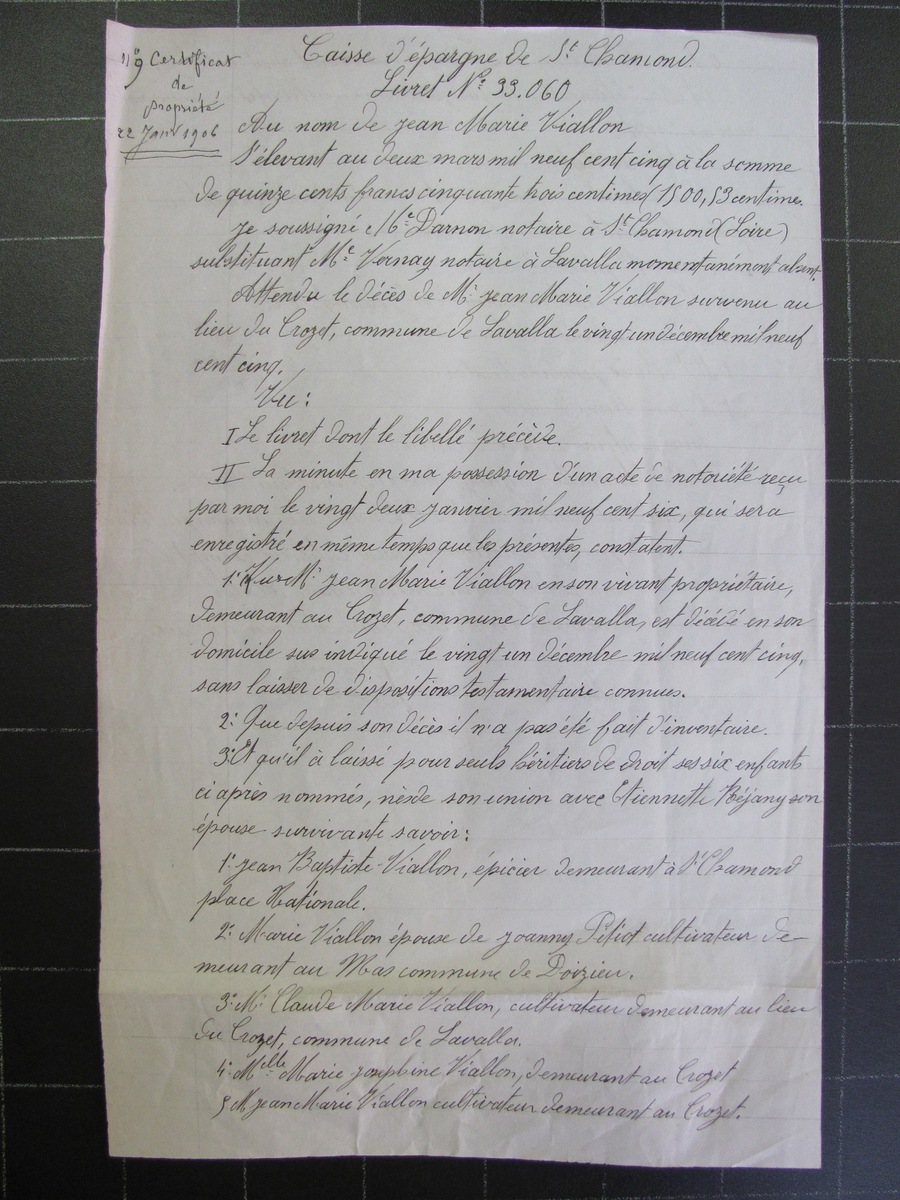 Certificat
de
propriété
22 Janv 1906
Caisse d'épargne de St Chamond.
Livret No 33.060
Au nom de Jean Marie Viallon
S'élevant au deux mars mil neuf cent cinq à la somme
de quinze cents francs cinquante trois centimes (1500,53 centime.
Je soussigné Me Darnon notaire à St Chamond (Loire)
substituant Me Vernay notaire à Lavalla momentanément absent.
Attendu le décès de Mr Jean Marie Viallon survenu au
lieu du Crozet, commune de Lavalla le vingt un décembre mil neuf
cent cinq.
Vu:
I Le livret dont le libellé précède.
II La minute en ma possession d'un acte de notoriété reçu
par moi le vingt deux Janvier mil neuf cent six, qui sera
enregistré en même temps que les présentes, constatent.
1º Mr Jean Marie Viallon en son vivant propriétaire,
demeurant au Crozet, commune de Lavalla, est décédé en son
domicile sus indiqué le vingt un décembre mil neuf cent cinq,
sans laisser de dispositions testamentaire connues.
2º Que depuis son décès il n'a pas été fait d'inventaire.
3º Et qu'il à laissé pour seuls héritiers de droit ses six enfants
ci après nommés, nés de son union avec Etiennette Réjany son
épouse survivante savoir:
1º Jean Baptiste Viallon, épicier demeurant à St Chamond
place Nationale.
2º Marie Viallon épouse de Joanny Pitiot cultivateur de-
meurant au Mas commune de Doizieu.
3º Mr Claude Marie Viallon, cultivateur demeurant au lieu
du Crozet, commune de Lavalla.
4º Mlle Marie Joséphine Viallon, demeurant au Crozet
5 M Jean Marie Viallon cultivateur demeurant au Crozet.